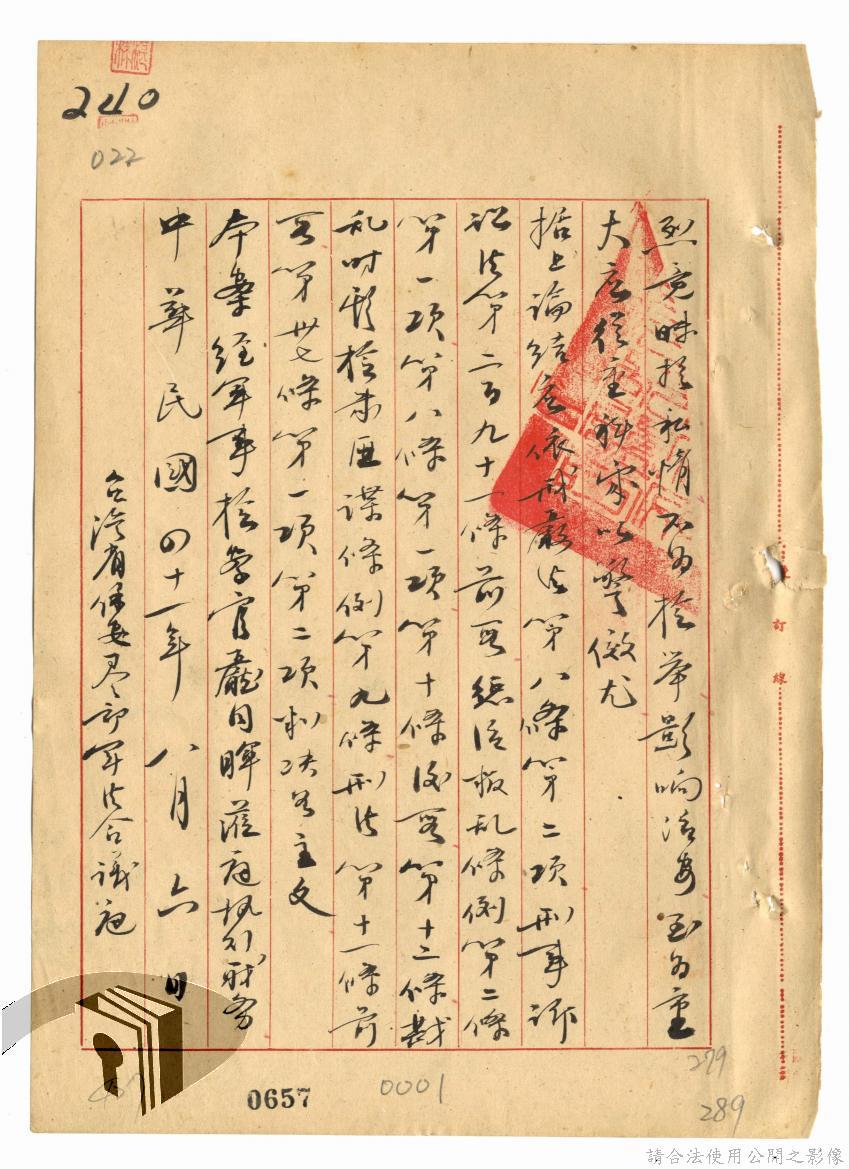 240
022
烈竟昧於私情不為檢舉影响治安至為重
大应從重科處以警傚尤
据上論結应依戒嚴法第八條第二項刑事訴
訟法第二百九十一條前段懲治叛乱條例第二條
第一項第八條第一項第十條後段第十二條戡
乱时期檢肅匪諜條例第九條刑法第十一條前
段第卅七條第一項第二項判决如主文
本案經軍事檢察官龐自暉蒞庭执行职务
中華民國四十一年八月六日
台湾省保安司令部軍法合議庭
訂線
0657
0001
279
289
請合法使用公開之影像